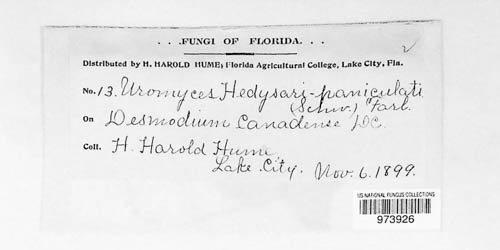 . . .FUNGI OF FLORIDA. . .
Distributed by H. HAROLD HUME; Florida Agricultural College, Lake City, Fla.
No. 13. Uromyces Hedysari-paniculati
(Schw.) Farl.
On Desmodium Canadense DC.
Coll. H. Harold Hume
Lake City. Nov. 6. 1899.
US NATIONAL FUNGUS COLLECTIONS
973926